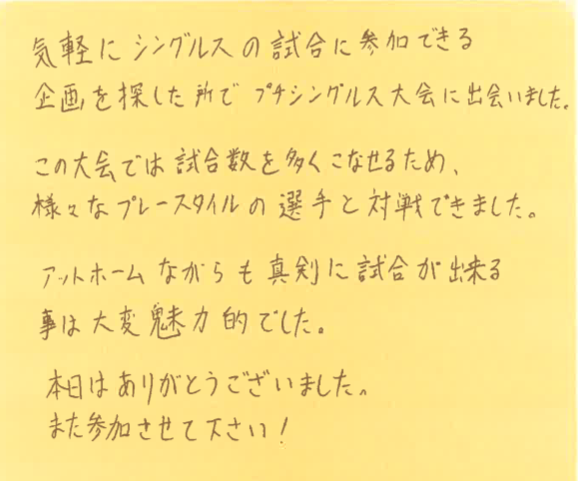 気軽にシングルスの試合に参加できる
企画を探した所でプチシングルス大会に出会いました。
この大会では試合数を多くこなせるため、
様々なプレースタイルの選手と対戦できました。
アットホームながらも真剣に試合が出来る
事は大変魅力的でした。
本日はありがとうございました。
また参加させて下さい!